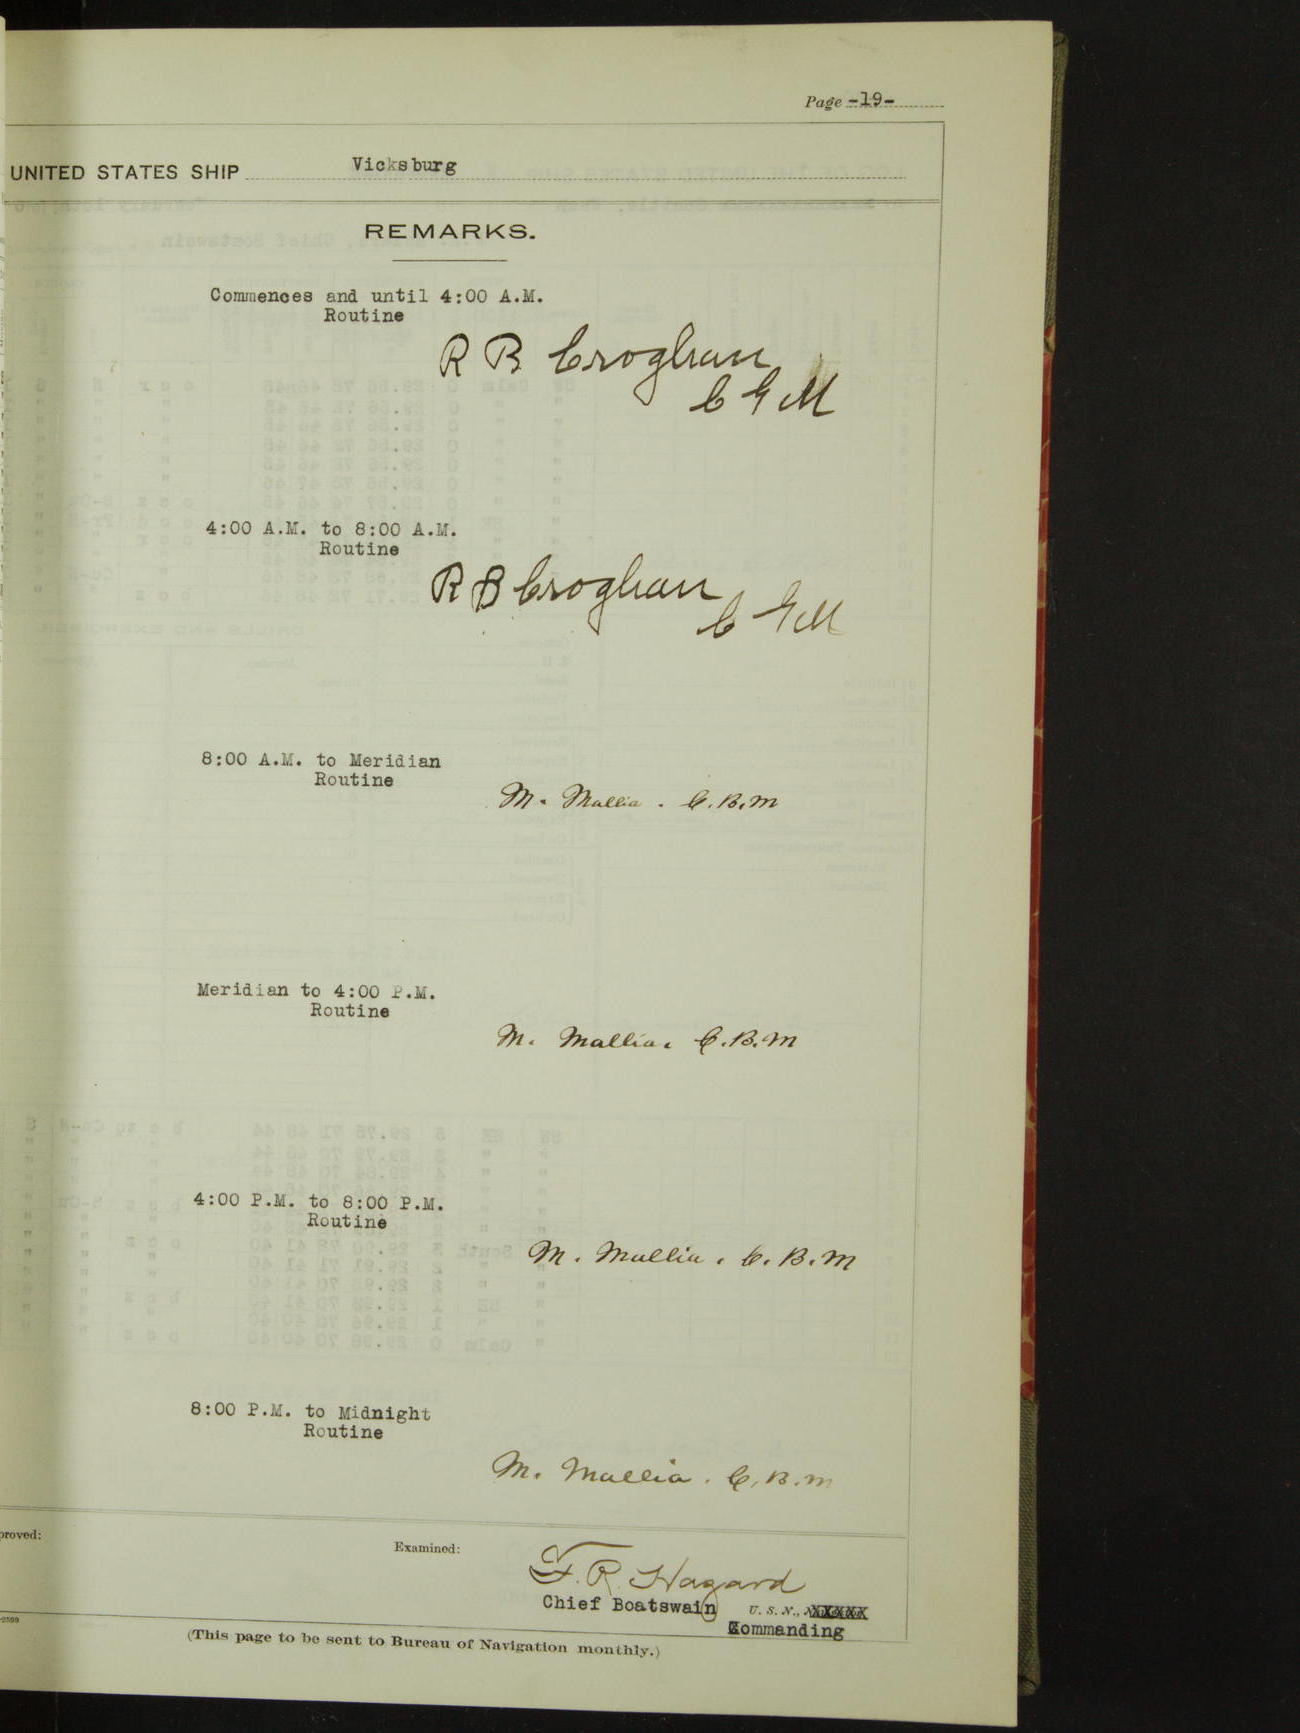 Page -19-
UNITED STATES SHIP Vicksburg
REMARKS.
Commences and until 4:00 A.M.
Routine
R B Croghan
C G M
4:00 A.M. to 8:00 A.M.
Routine
R B Croghan
C G M
8:00 A.M. to Meridian
Routine
M. Mallia. C.B.M
Meridian to 4:00 P.M.
Routine
M. Mallia. C.B.M
4:00 P.M. to 8:00 P.M.
Routine
M. Mallia. C.B.M
8:00 P.M. to Midnight
Routine
M. Mallia. C.B.M
proved:
Examined:
F. R. Hazard
Chief Boatswain U. S. N.,
Commanding
2599
(This page to be sent to Bureau of Navigation monthly.)